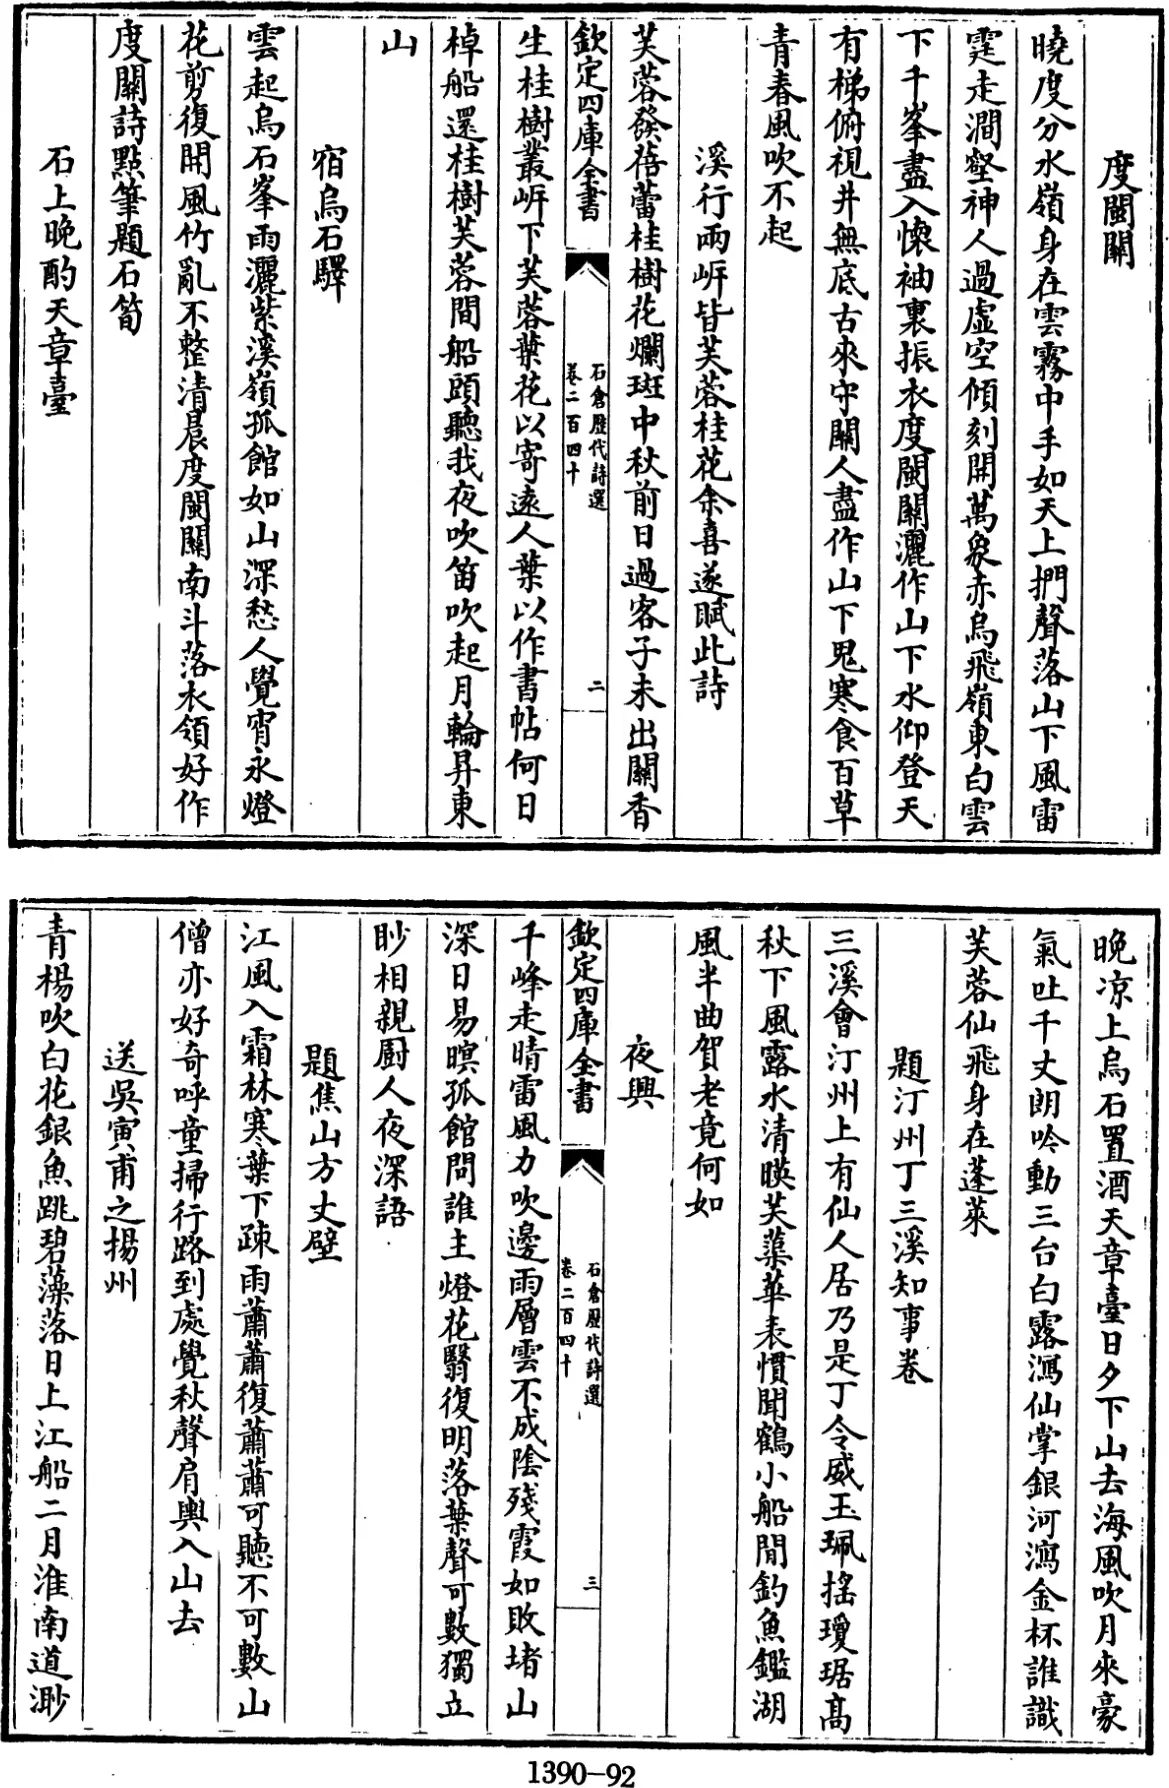 度閩關
曉度分水嶺身在雲霧中手如天上捫聲落山下風雷
霆走澗壑神人過虛空傾刻開萬象赤烏飛嶺東白雲
下千峯盡入懷袖裏振衣度閩關灑作山下水仰登天
有梯俯視井無底古來守關人盡作山下鬼寒食百草
青春風吹不起
溪行兩岍皆芙蓉桂花余喜遂賦此詩
芙蓉發蓓蕾桂樹花爛斑中秋前日過客子未出關香
欽定四庫全書
石倉歷代詩選
卷二百四十
二
生桂樹叢岍下芙蓉葉花以寄遠人葉以作書帖何日
棹船還桂樹芙蓉間船頭聽我夜吹笛吹起月輪昇東
山
宿烏石驛
雲起烏石峯雨灑紫溪嶺孤館如山深愁人覺宵永燈
花剪復開風竹亂不整清晨度閩關南斗落衣領好作
度關詩點筆題石筍
石上晚酌天章臺
晚凉上烏石置酒天章臺日夕下山去海風吹月來豪
氣吐千丈朗吟動三台白露瀉仙掌銀河瀉金杯誰識
芙蓉仙飛身在蓬萊
題汀州丁三溪知事卷
三溪會汀州上有仙人居乃是丁令威玉珮搖瓊琚高
秋下風露水清暎芙蕖華表慣聞鶴小船閒釣魚鑑湖
風半曲賀老竟何如
夜興
欽定四庫全書
石倉歷代詩選
卷二百四十
三
千峰走晴雷風力吹邊雨層雲不成陰殘霞如敗堵山
深日易暝孤館問誰主燈花翳復明落葉聲可數獨立
眇相親厨人夜深語
題焦山方丈壁
江風入霜林寒葉下疎雨蕭蕭復蕭蕭可聽不可數山
僧亦好奇呼童掃行路到處覺秋聲肩輿入山去
送吳寅甫之揚州
青楊吹白花銀魚跳碧藻落日上江船二月淮南道渺
1390-92